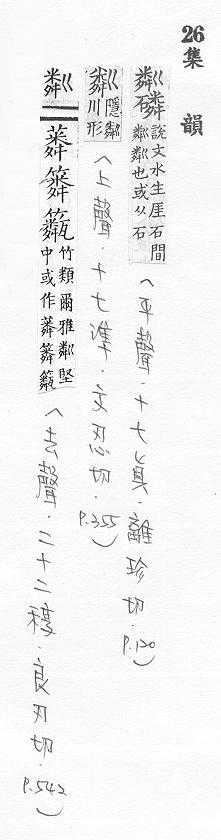 26
集韻
粼磷 說文水生厓石間粼粼也或从石
(平聲．十七真．離珍切．P.120)
粼 隱粼川形
(上聲．十七準．文忍切．P.355)
粼 竹類爾雅粼堅中或作
(去聲．二十二稕．良刃切．P.542)